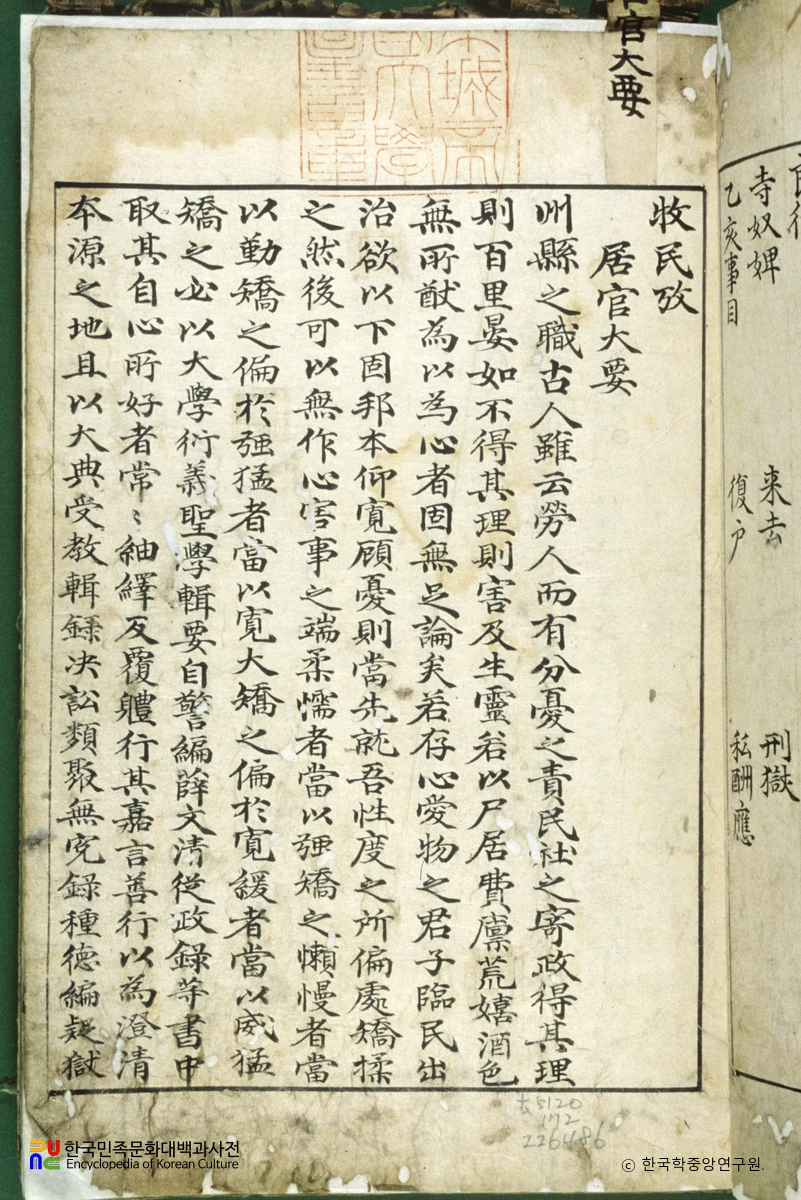 牧民攷
居官大要
州縣之職古人雖云勞人而有分憂之責民社之寄政得其理
則百里晏如不得其理則害及生靈若以尸居費廩荒嬉酒色
無所猷為以為心者固無足論矣若存心愛物之君子臨民出
治欲以下固邦本仰寬顧憂則當先就吾性度之所偏處矯揉
之然後可以無作心害事之端柔懦者當以强矯之懶慢者當
以勤矯之偏於强猛者當以寬大矯之偏於寬緩者當以威猛
矯之必以大學衍義聖學輯要自警編薛文清從政錄等書中
取其自心所好者常〻紬繹反覆軆行其嘉言善行以為澄清
本源之地且以大典受教輯錄决訟類聚無寃錄種德編疑獄
官大要
寺奴婢 来去 刑獄
乙亥事目 復户 私酬應
古5120
172
226486
한국민족문화대백과사전
Encyclopedia of Korean Culture
© 한국학중앙연구원.